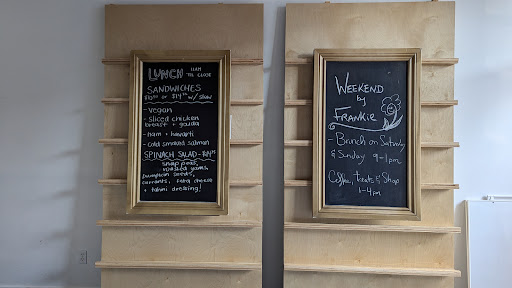 LUNCH 11AM
'TIL CLOSE
SANDWICHES
W/ SALAD
- vegan
- sliced chicken
breast + gouda
- ham + havarti
- cold smoked salmon
SPINACH SALAD -
snap peas,
roasted yams,
pumpkin seeds,
currants, feta cheese
+ tahini dressing!
WEEKEND
by
FRANKIE
Brunch on Saturday
& Sunday 9-1pm
Coffee, treats & Shop
1-4pm